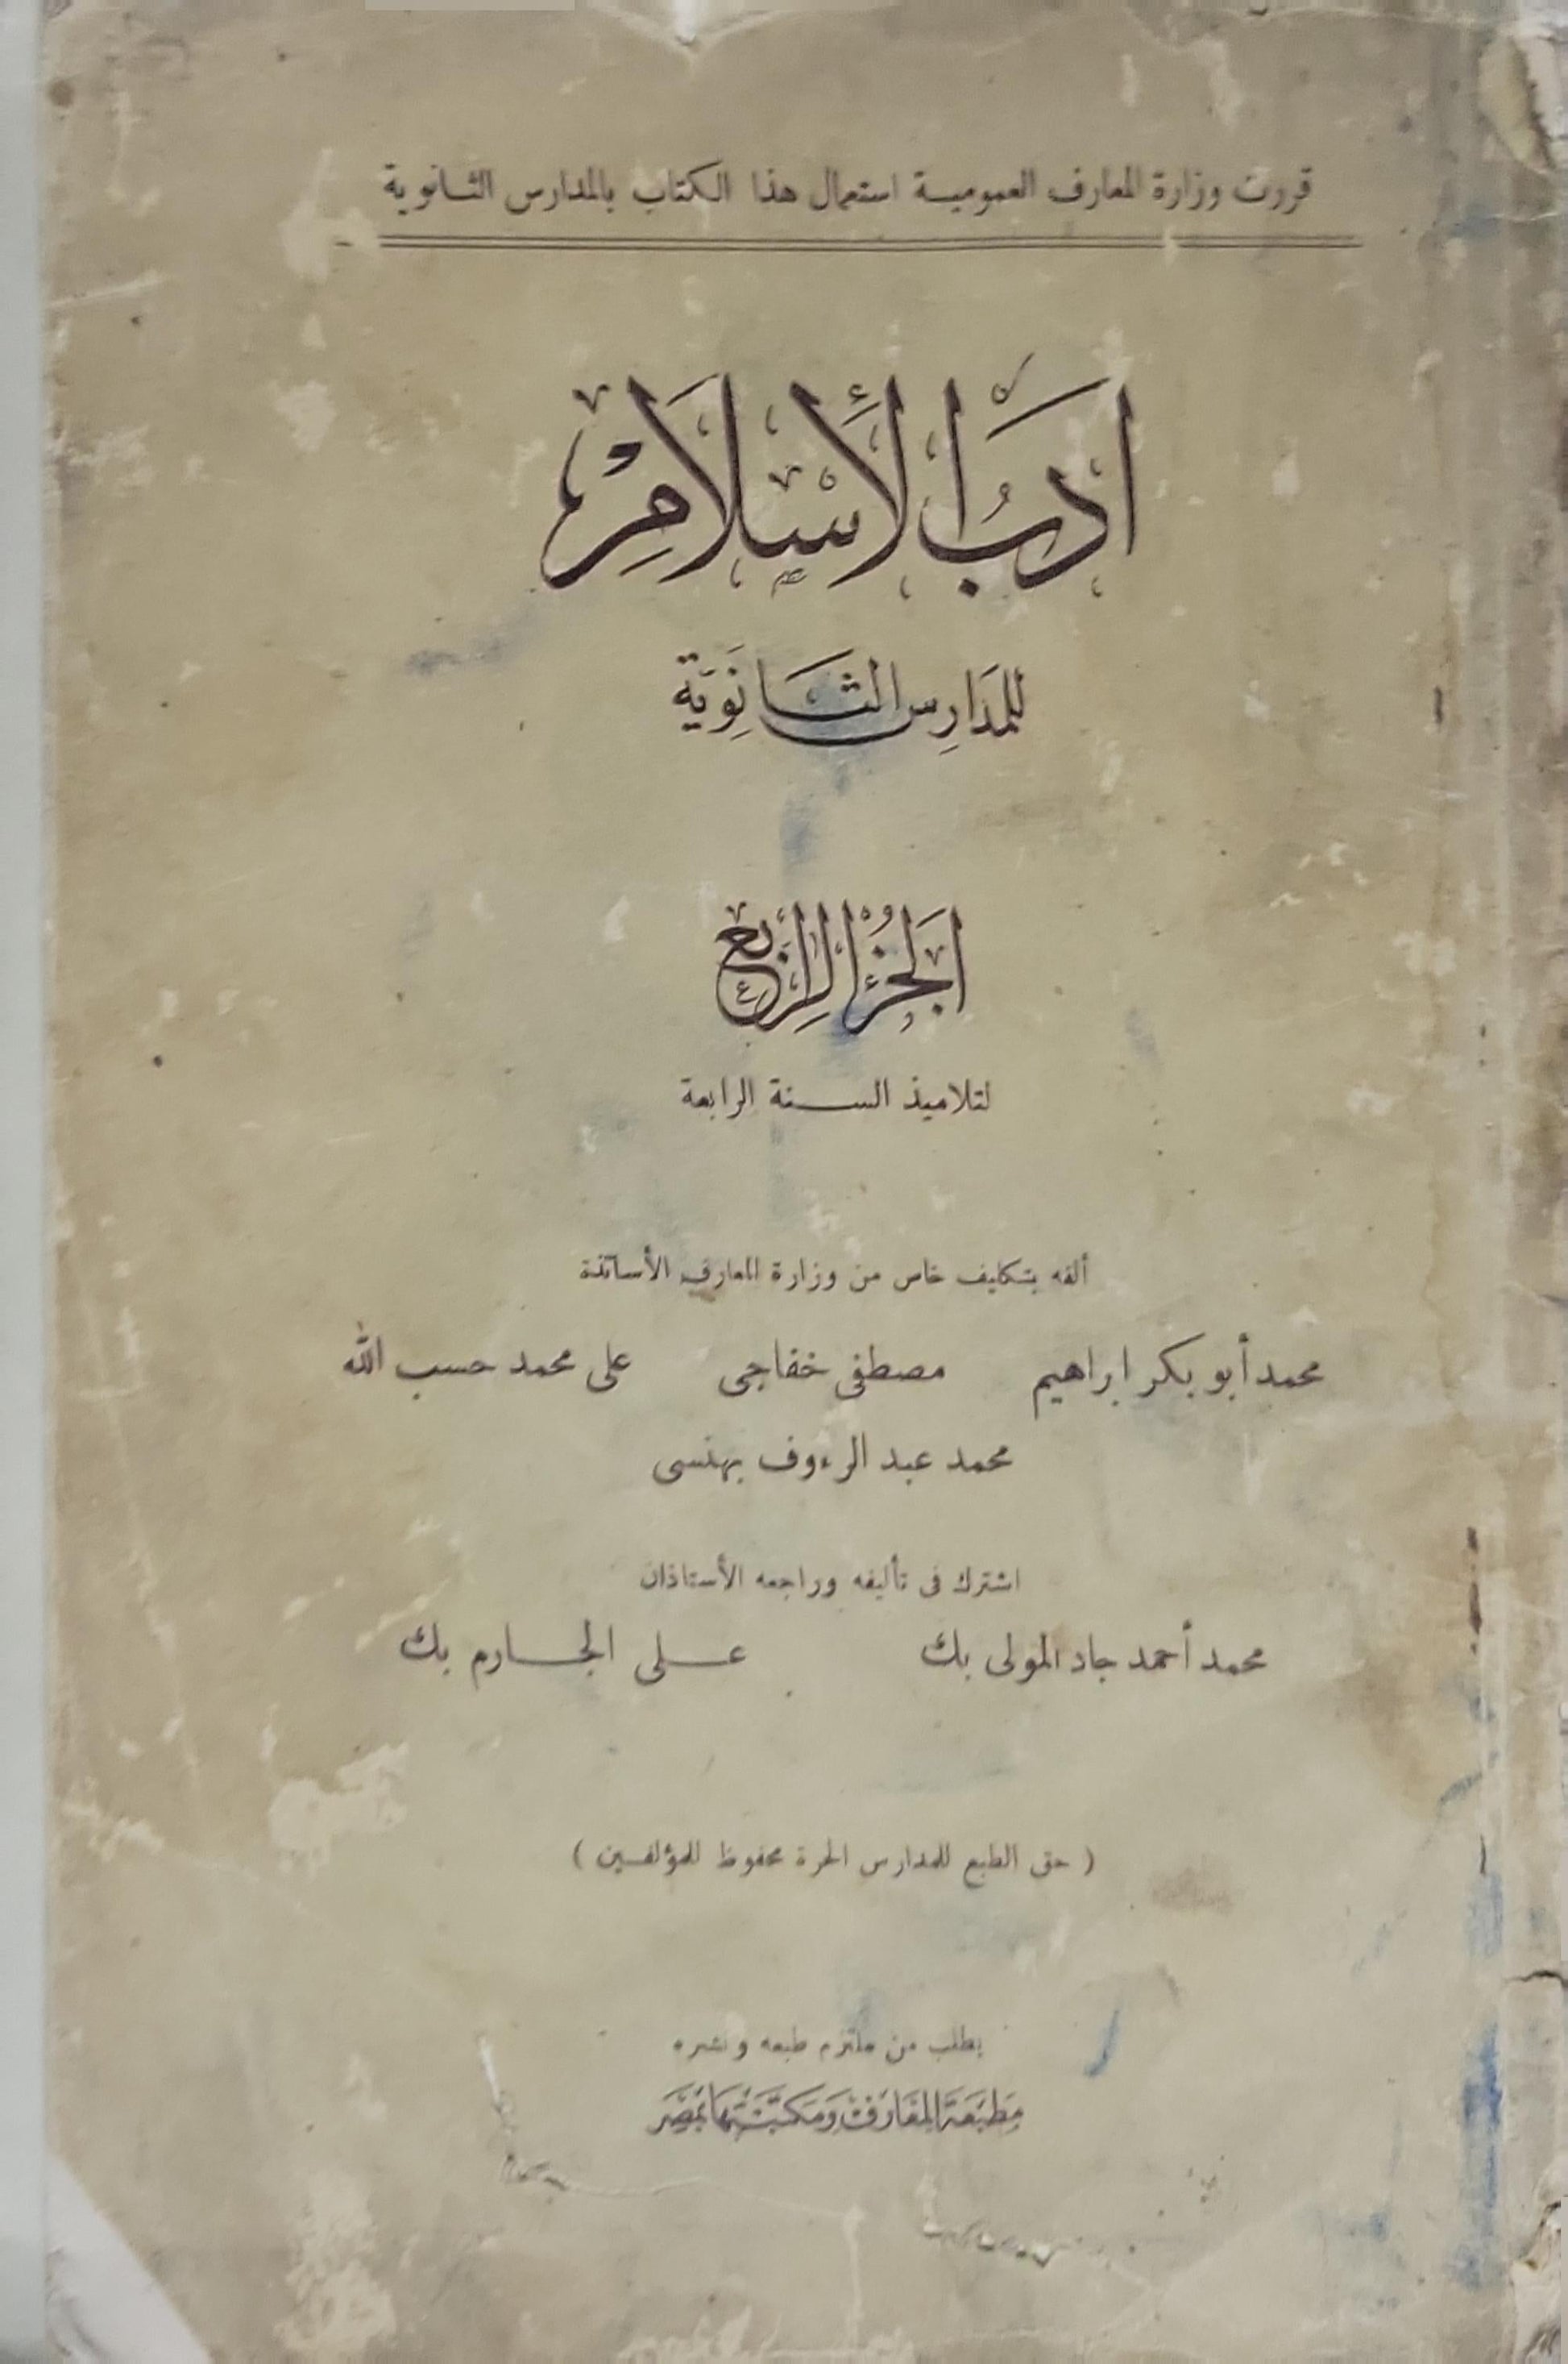 قررت وزارة المعارف العمومية استعمال هذا الكتاب بالمدارس الثانوية
أدب الإسلام
للمدارس الثانوية
الجزء الرابع
لتلاميذ السنة الرابعة
ألفه بتكليف خاص من وزارة المعارف الأساتذة
محمد أبو بكر ابراهيم مصطفى خفاجى على محمد حسب الله
محمد عبد الرءوف بهنسى
اشترك فى تأليفه وراجعه الأستاذان
محمد أحمد جاد المولى بك على الجارم بك
( حق الطبع للمدارس الحرة محفوظ للمؤلفين )
يطلب من ملتزم طبعه ونشره
مطبعة المعارف ومكتبتها بمصر